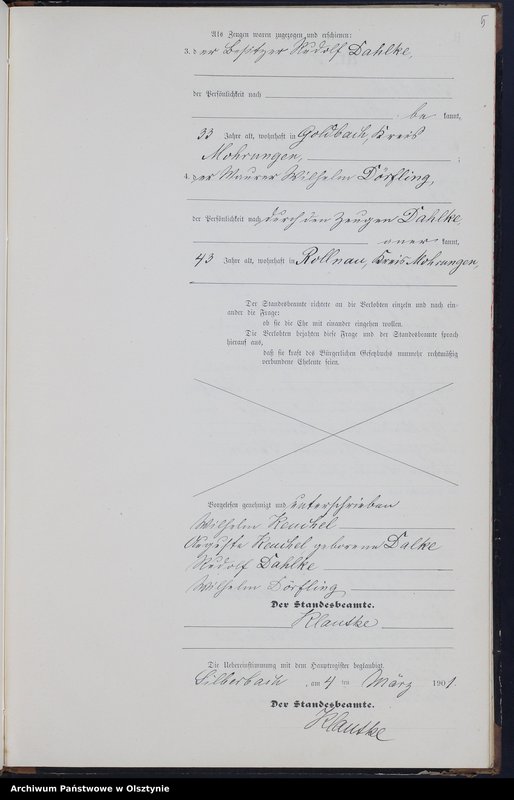 5
Als Zeugen waren zugezogen und erschienen:
3. der Besitzer Rudolf Dahlke,
der Persönlichkeit nach
be kannt,
33 Jahre alt, wohnhaft in Goldbach, Kreis
Mohrungen, ;
4. der Maurer Wilhelm Dörfling,
der Persönlichkeit nach durch den Zeugen Dahlke,
aner kannt,
43 Jahre alt, wohnhaft in Rollnau, Kreis Mohrungen,
Der Standesbeamte richtete an die Verlobten einzeln und nach ein-
ander die Frage:
ob sie die Ehe mit einander eingehen wollen.
Die Verlobten bejahten diese Frage und der Standesbeamte sprach
hierauf aus,
daß sie kraft des Bürgerlichen Gesetzbuchs nunmehr rechtmäßig
verbundene Eheleute seien.
Vorgelesen, genehmigt und unterschrieben
Wilhelm Keuchel
Auguste Keuchel geborene Dalke
Rudolf Dahlke
Wilhelm Dörfling
Der Standesbeamte.
Klautke
Die Uebereinstimmung mit dem Hauptregister beglaubigt.
Silberbach, am 4 ten März 1901.
Der Standesbeamte.
Klautke
Archiwum Państwowe w Olsztynie